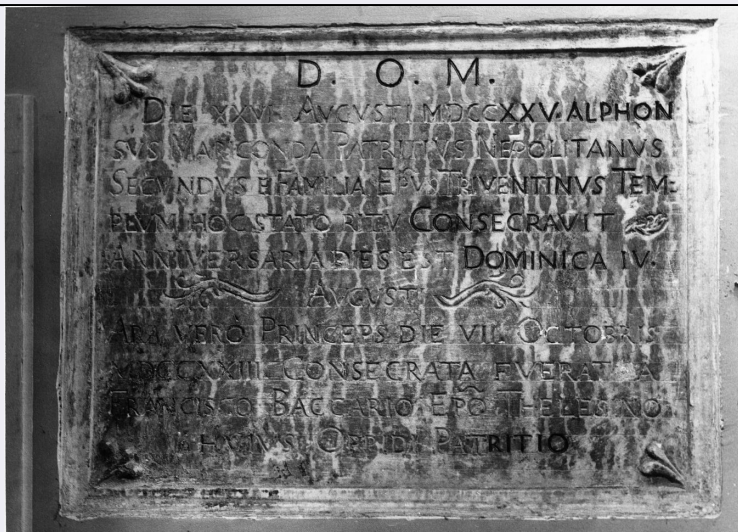 D. O. M.
DIE XXVI AVGVSTI MDCCXXV. ALPHON
SVS MARICONDA PATRITIVS NEPOLITANVS
SECVNDVS E FAMILIA EPVS TRIVENTINVS TEM=
PLVM HOC STATO RITV CONSECRAVIT
ANNIVERSARIA DIES EST DOMINICA IV.
AVGVSTI
ARA VERÒ PRINCEPS DIE VII. OCTOBRIS
MDCCXXIII. CONSECRATA FVERAT A
FRANCISCO BACCARIO EPŌ THELESINO
HVIVS OPPIDI PATRITIO